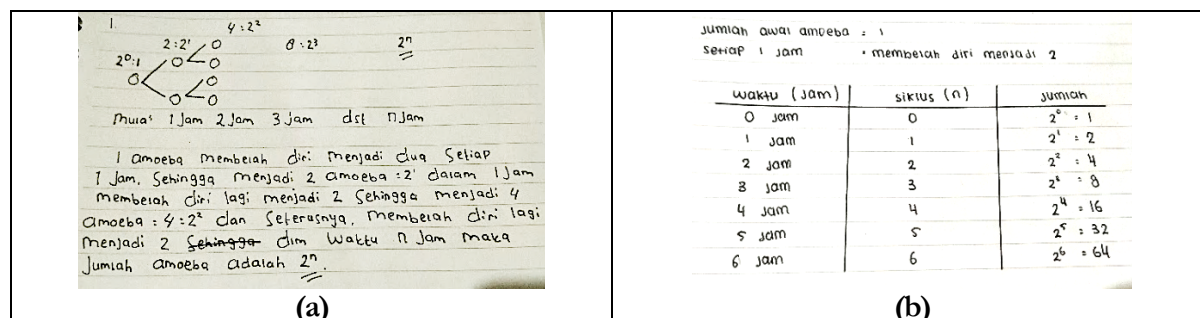 1.
4 : 2²
2 : 2¹ 8 : 2³ 2ⁿ
2⁰ : 1
Mulai 1 Jam 2 Jam 3 Jam dst n Jam
1 amoeba membelah diri menjadi dua setiap
1 Jam. Sehingga menjadi 2 amoeba : 2¹ dalam 1 Jam
membelah diri lagi menjadi 2 Sehingga menjadi 4
amoeba : 4 : 2² dan Seterusnya. membelah diri lagi
menjadi 2 Sehingga dlm Waktu n Jam maka
Jumlah amoeba adalah 2ⁿ.
(a)
Jumlah awal amoeba : 1
setiap 1 jam : membelah diri menjadi 2
waktu (jam) siklus (n) Jumlah
0 jam 0 2⁰ : 1
1 jam 1 2¹ : 2
2 jam 2 2² : 4
3 jam 3 2³ : 8
4 jam 4 2⁴ : 16
5 jam 5 2⁵ : 32
6 jam 6 2⁶ : 64
(b)